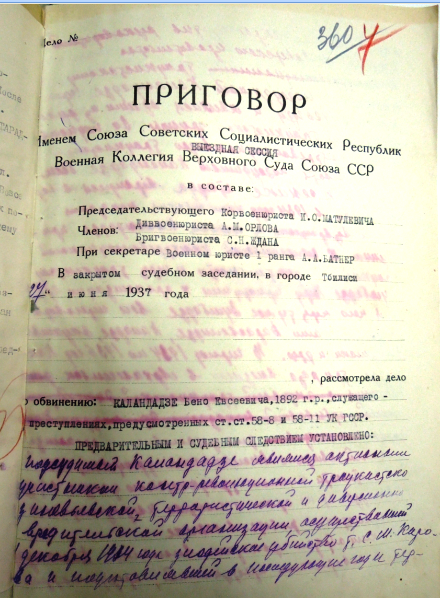 Дело №
360 7
ПРИГОВОР
Именем Союза Советских Социалистических Республик
ВЫЕЗДНАЯ СЕССИЯ
Военная Коллегия Верховного Суда Союза ССР
в составе:
Председательствующего Корвоенюриста И.О.МАТУЛЕВИЧА
Членов: Диввоенюриста А.М.ОРЛОВА
Бригвоенюриста С.Н.ЖДАНА
При секретаре Военном юристе 1 ранга А.А.БАТНЕР
В закрытом судебном заседании, в городе Тбилиси
июня 1937 года
, рассмотрела дело
о обвинению: КАЛАНДАДЗЕ Бено Евсеевича, 1892 г.р., служащего -
преступлениях, предусмотренных ст.ст.58-8 и 58-11 УК ГССР.
ПРЕДВАРИТЕЛЬНЫМ И СУДЕБНЫМ СЛЕДСТВИЕМ УСТАНОВЛЕНО:
подсудимый Каландадзе являлся активным
участником контр-революционной троцкистско
зиновьевской, террористической и диверсионно
вредительской организации, осуществившей
декабря 1934 года злодейское убийство т. С.М. Киро-
ва и подготовлявшей в последующие годы